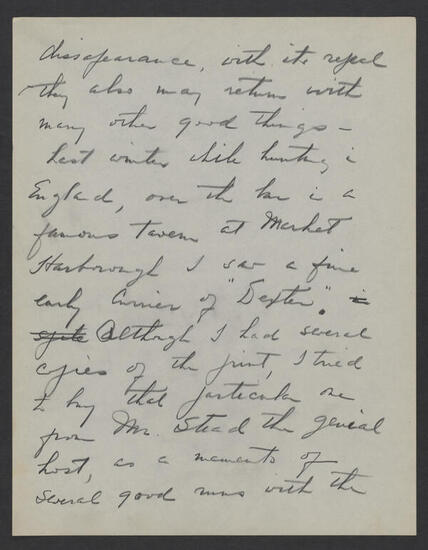 dissapearance, with its repeal
they also may return with
many other good things -
Last winter while hunting i
Englad, over the bar i a
famous tavern at Market
Harborough I saw a fine
early Currier of "Dexter". in
spite Although I had several
copies of the print, I tried
to buy that particular one
from Mr. Stead the genial
host, as a memento of
several good runs with the